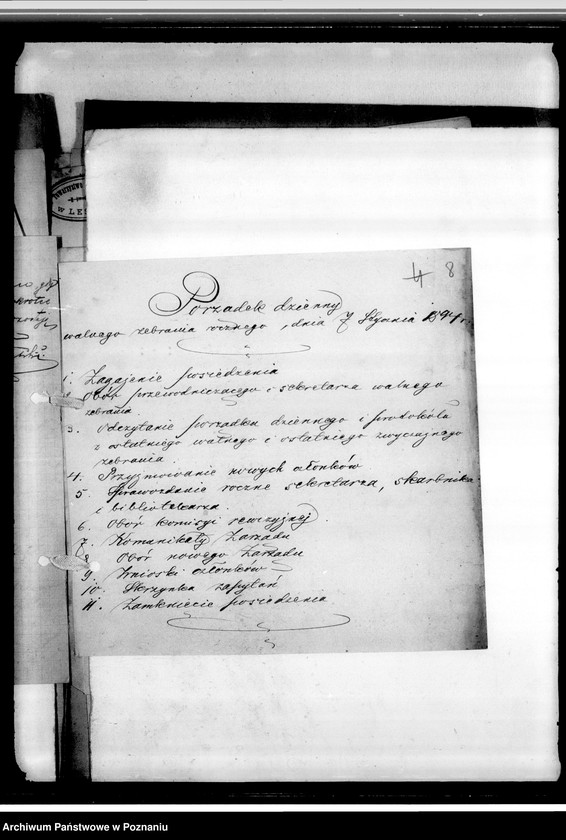 4 8
Porządek dzienny
walnego zebrania rocznego, dnia 7 Stycznia 1894 r.
1. Zagajenie posiedzenia
2. Obór przewodniczącego i sekretarza walnego
zebrania
3. Odczytanie porządku dziennego i protokółu
z ostatniego walnego i ostatniego zwyczajnego
zebrania.
4. Przyjmowanie nowych członków
5. Sprawozdanie roczne sekretarza, skarbnika
i bibliotekarza.
6. Obór komisyi rewizyjnej.
7. Komunikaty Zarządu
8. Obór nowego Zarządu
9. Wnioski członków
10. Skrzynka zapytań
11. Zamknięcie posiedzenia
W LES
Archiwum Państwowe w Poznaniu